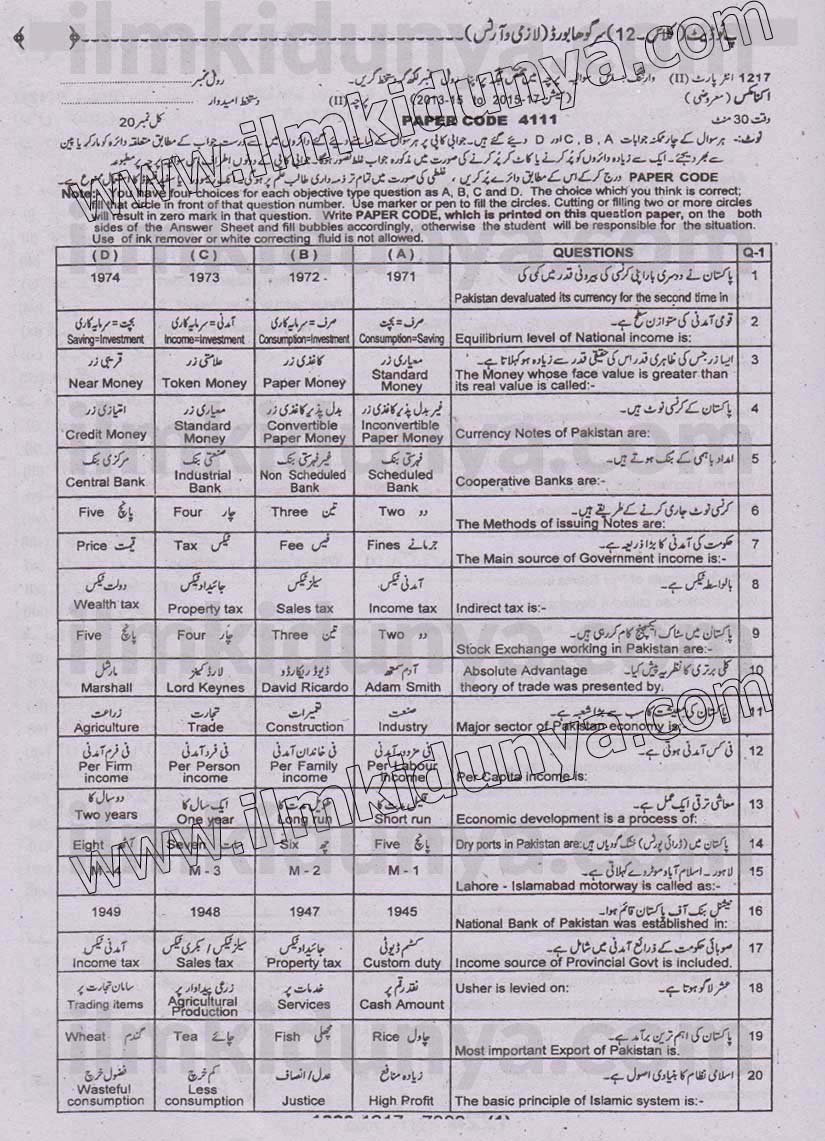 پاٹو ڈیٹ (کلاس ۔ 12) سرگودھا بورڈ (لازمی و آرٹس)
1217 انٹر پارٹ (II)
رول نمبر
اکنامکس (معروضی) (سیشن 2015-17 to 2013-15) پرچہ (II) دستخط امیدوار
وقت 30 منٹ PAPER CODE 4111 کل نمبر 20
نوٹ:- ہر سوال کے چار ممکنہ جوابات C, B, A اور D دیئے گئے ہیں۔
Note:- You have four choices for each objective type question as A, B, C and D. The choice which you think is correct;
fill that circle in front of that question number. Use marker or pen to fill the circles. Cutting or filling two or more circles
will result in zero mark in that question. Write PAPER CODE, which is printed on this question paper, on the both
sides of the Answer Sheet and fill bubbles accordingly, otherwise the student will be responsible for the situation.
Use of ink remover or white correcting fluid is not allowed.
(D) (C) (B) (A) QUESTIONS Q-1
1974 1973 1972 1971 پاکستان نے دوسری بار اپنی کرنسی کی بیرونی قدر میں کمی کی 1
Pakistan devaluated its currency for the second time in
بچت = سرمایہ کاری آمدنی = سرمایہ کاری صرف = سرمایہ کاری صرف = بچت قومی آمدنی کی متوازن سطح ہے۔ 2
Saving=Investment Income=Investment Consumption=Investment Consumption=Saving Equilibrium level of National income is:
قریبی زر علامتی زر کاغذی زر معیاری زر ایسا زر جس کی ظاہری قدر اس کی حقیقی قدر سے زیادہ ہو کہلاتا ہے۔ 3
Near Money Token Money Paper Money Standard Money The Money whose face value is greater than
its real value is called:-
امتیازی زر معیاری زر بدل پذیر کاغذی زر غیر بدل پذیر کاغذی زر پاکستان کے کرنسی نوٹ ہیں۔ 4
Credit Money Standard Money Convertible Paper Money Inconvertible Paper Money Currency Notes of Pakistan are:
مرکزی بنک صنعتی بنک غیر فہرستی بنک فہرستی بنک امداد باہمی کے بنک ہوتے ہیں۔ 5
Central Bank Industrial Bank Non Scheduled Bank Scheduled Bank Cooperative Banks are:-
Five پانچ Four چار Three تین Two دو کرنسی نوٹ جاری کرنے کے طریقے ہیں۔ 6
The Methods of issuing Notes are:
Price قیمت Tax ٹیکس Fee فیس Fines جرمانے حکومت کی آمدنی کا بڑا ذریعہ ہے۔ 7
The Main source of Government income is:-
دولت ٹیکس جائیداد ٹیکس سیلز ٹیکس آمدنی ٹیکس بالواسطہ ٹیکس ہے۔ 8
Wealth tax Property tax Sales tax Income tax Indirect tax is:-
Five پانچ Four چار Three تین Two دو پاکستان میں سٹاک ایکسچینج کام کر رہی ہیں۔ 9
Stock Exchange working in Pakistan are:-
مارشل لارڈ کینز ڈیوڈ ریکارڈو آدم سمتھ Absolute Advantage کلی برتری کا نظریہ پیش کیا۔ 10
Marshall Lord Keynes David Ricardo Adam Smith theory of trade was presented by.
زراعت تجارت تعمیرات صنعت پاکستان کی معیشت کا سب سے بڑا شعبہ ہے۔ 11
Agriculture Trade Construction Industry Major sector of Pakistan economy is:
فی فرم آمدنی فی فرد آمدنی فی خاندان آمدنی فی مزدور آمدنی فی کس آمدنی ہوتی ہے۔ 12
Per Firm income Per Person income Per Family income Per Labour income Per Capita income is:
دو سال کا ایک سال کا طویل مدت کا قلیل مدت کا معاشی ترقی ایک عمل ہے۔ 13
Two years One year Long run Short run Economic development is a process of:
Eight آٹھ Seven سات Six چھ Five پانچ Dry ports in Pakistan are: پاکستان میں (ڈرائی پورٹس) خشک گودیاں ہیں 14
M - 4 M - 3 M - 2 M - 1 لاہور۔ اسلام آباد موٹر وے کہلاتی ہے۔ 15
Lahore - Islamabad motorway is called as:-
1949 1948 1947 1945 نیشنل بنک آف پاکستان قائم ہوا۔ 16
National Bank of Pakistan was established in:
آمدنی ٹیکس سیلز ٹیکس / بکری ٹیکس جائیداد ٹیکس کسٹم ڈیوٹی صوبائی حکومت کے ذرائع آمدنی میں شامل ہے۔ 17
Income tax Sales tax Property tax Custom duty Income source of Provincial Govt is included.
سامان تجارت پر زرعی پیداوار پر خدمات پر نقد رقم پر عشر لاگو ہوتا ہے۔ 18
Trading items Agricultural Production Services Cash Amount Usher is levied on:
Wheat گندم Tea چائے Fish مچھلی Rice چاول پاکستان کی اہم ترین برآمد ہے۔ 19
Most important Export of Pakistan is.
فضول خرچ کم خرچ عدل / انصاف زیادہ منافع اسلامی نظام کا بنیادی اصول ہے۔ 20
Wasteful consumption Less consumption Justice High Profit The basic principle of Islamic system is:-
www.ilmkidunya.com
www.ilmkidunya.com
ilmkidunya.com